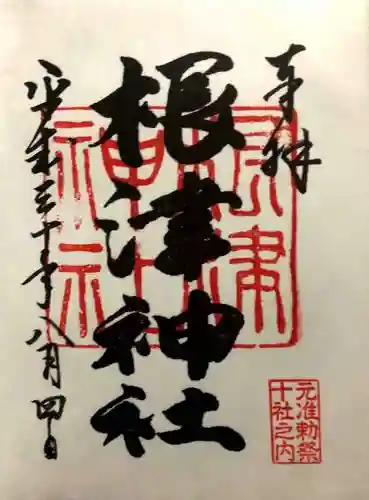 奉拝
根津神社
平成三十年八月四日
根津神社
元准勅祭
十社之内